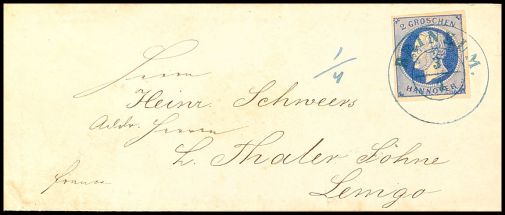 2 GROSCHEN
HANNOVER
1/4
Herrn
Heinr. Schweers
Addr. Herrn
L. Thaler Söhne
Lemgo
franco